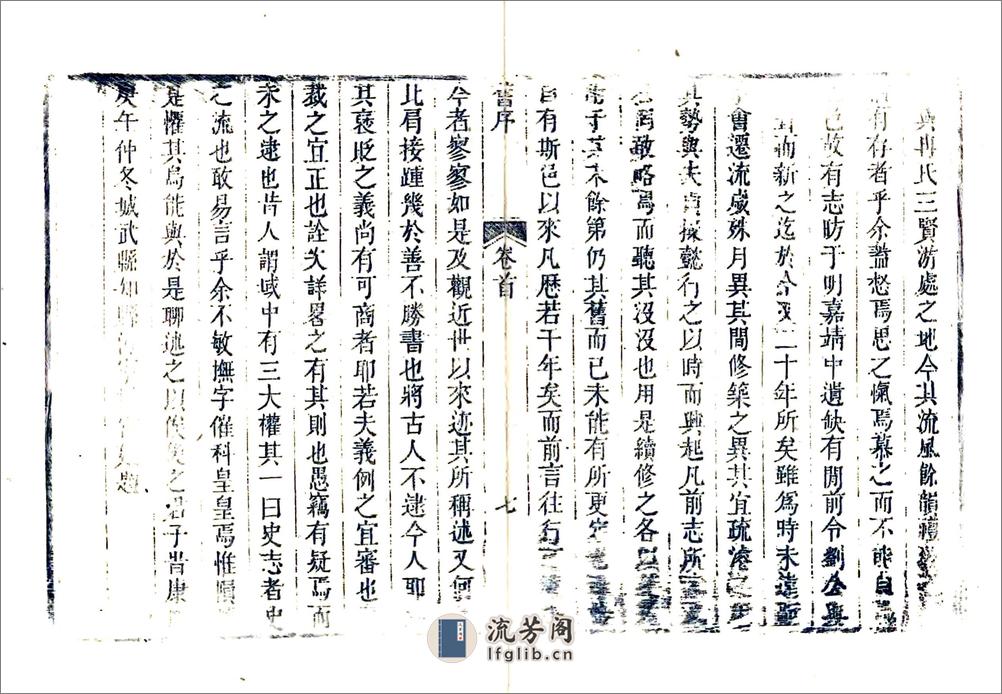 與冉氏三賢游處之地今其流風餘韻
有存者乎余讀愁焉思之愾焉慕之而不能自
邑故有志昉于明嘉靖中遺缺有閒前令劉公
而新之迄於今二十年所矣雖爲時未遠
會遷流歲殊月異其間修築之異其宜疏濬之
其勢與夫貞操懿行之以時而興起凡前志所
敢略焉而聽其沒沒也用是續修之各以
第仍其舊而已未能有所更定
自有斯邑以來凡歷若干年矣而前言往行
舊序
卷首
七
今者寥寥如是及觀近世以來迹其所稱述又何
比肩接踵幾於善不勝書也將古人不逮今人耶
其褒貶之義尚有可商者耶若夫義例之宜審也
裁之宜正也詮次詳畧之有其則也愚竊有疑焉而
未之逮也昔人謂域中有三大權其一曰史志者史
之流也敢易言乎余不敏撫字催科皇皇焉惟隕
是懼其烏能與於是聊述之以俟後之君子昔康熙
庚午仲冬城武縣知縣
題
流芳阁
lfglib.cn